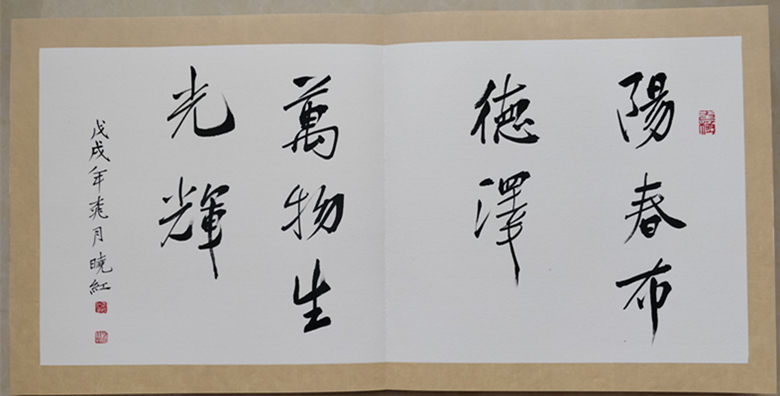 陽春布
德澤
萬物生
光輝
戊戌年荛月曉紅